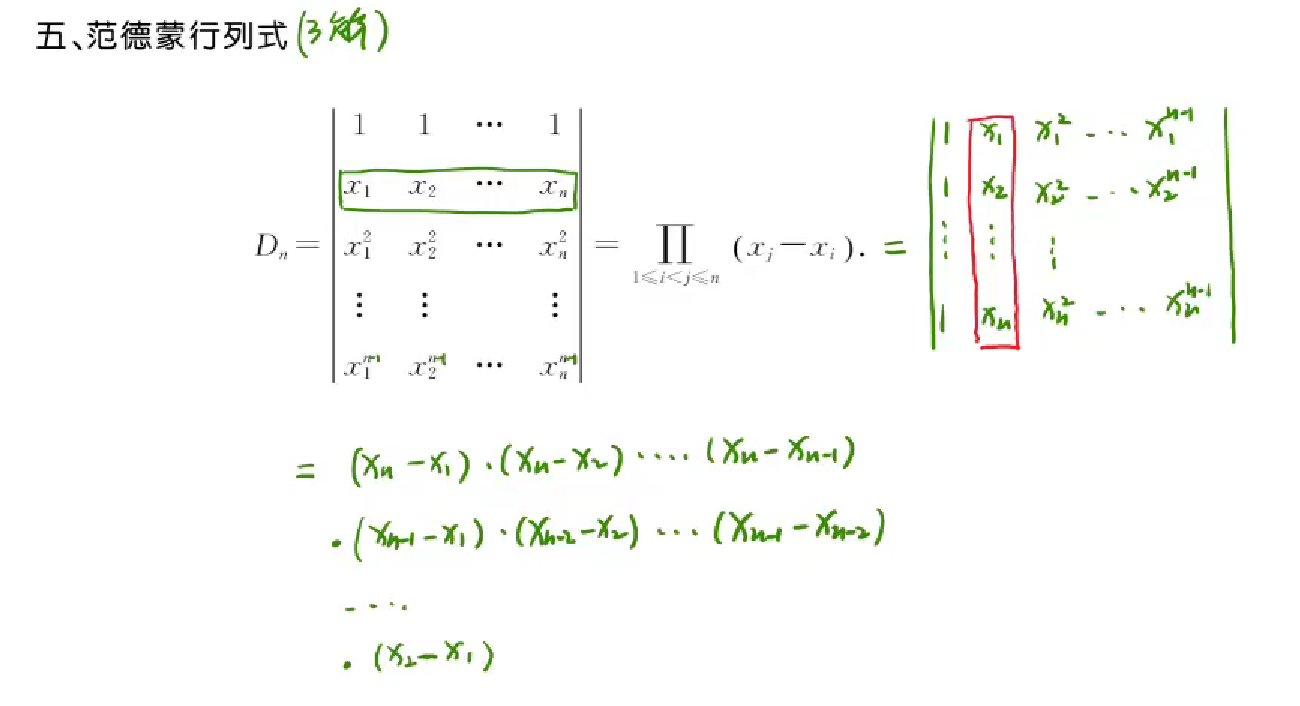 五、范德蒙行列式(3解)
D_n = | 1 1 ⋯ 1 |
| x_1 x_2 ⋯ x_n |
| x_1^2 x_2^2 ⋯ x_n^2 |
| ⋮ ⋮ ⋮ |
| x_1^{n-1} x_2^{n-1} ⋯ x_n^{n-1} |
= ∏_{1≤i<j≤n} (x_j − x_i).
= | 1 x_1 x_1^2 ⋯ x_1^{n-1} |
| 1 x_2 x_2^2 ⋯ x_2^{n-1} |
| ⋮ ⋮ ⋮ |
| 1 x_n x_n^2 ⋯ x_n^{n-1} |
= (x_n − x_1)·(x_n − x_2)····(x_n − x_{n-1})
·(x_{n-1} − x_1)·(x_{n-2} − x_2)⋯(x_{n-1} − x_{n-2})
····
·(x_2 − x_1)